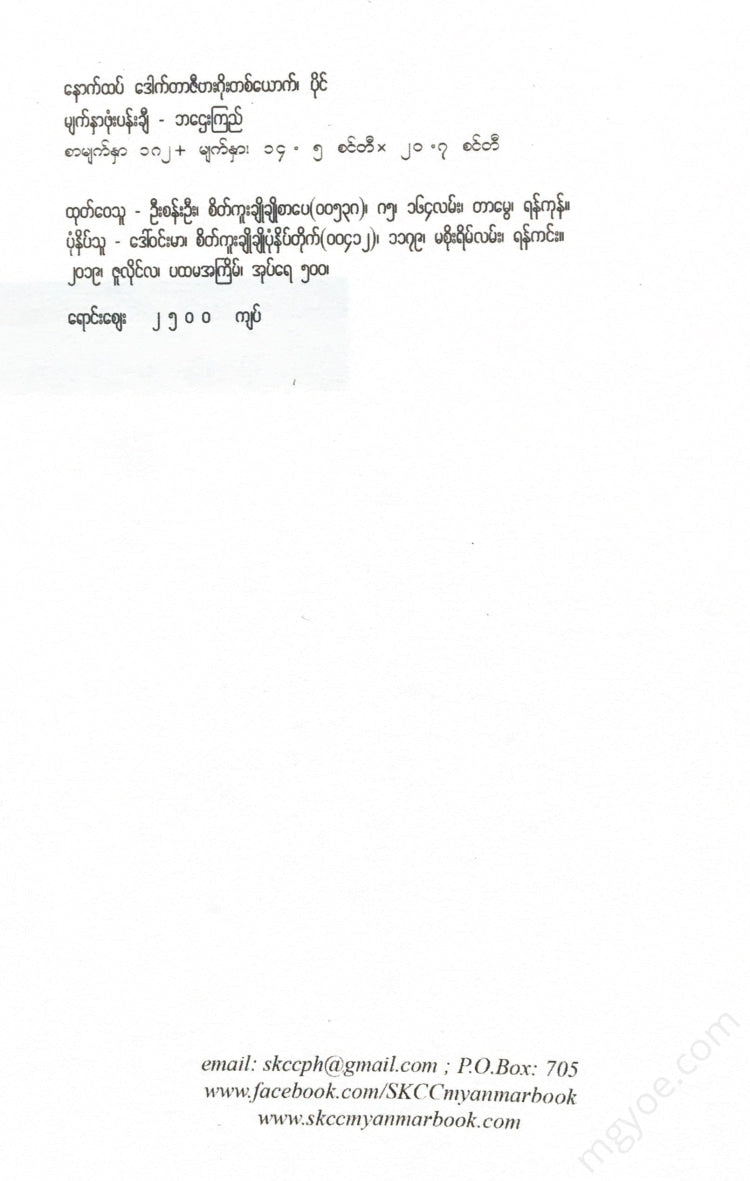 နောက်ထပ် ဒေါက်တာဇီဗားဂိုးတစ်ယောက်၊ ပိုင်
မျက်နှာဖုံးပန်းချီ - ဘဌေးကြည်
စာမျက်နှာ ၁၈၂+ မျက်နှာ၊ ၁၄.၅ စင်တီ× ၂၀.၇ စင်တီ
ထုတ်ဝေသူ - ဦးစန်းဦး၊ စိတ်ကူးချိုချိုစာပေ(၀၀၅၃၈)၊ ဂ၅၊ ၁၆၄လမ်း၊ တာမွေ၊ ရန်ကုန်။
ပုံနှိပ်သူ - ဒေါ်ဝင်းမာ၊ စိတ်ကူးချိုချိုပုံနှိပ်တိုက်(၀၀၄၁၂)၊ ၁၁၇၉၊ မစိုးရိမ်လမ်း၊ ရန်ကင်း။
၂၀၁၉၊ ဇူလိုင်လ၊ ပထမအကြိမ်၊ အုပ်ရေ ၅၀၀၊
ရောင်းဈေး ၂၅၀၀ ကျပ်
email: skccph@gmail.com ; P.O.Box: 705
www.facebook.com/SKCCmyanmarbook
www.skccmyanmarbook.com
mgyoe.com